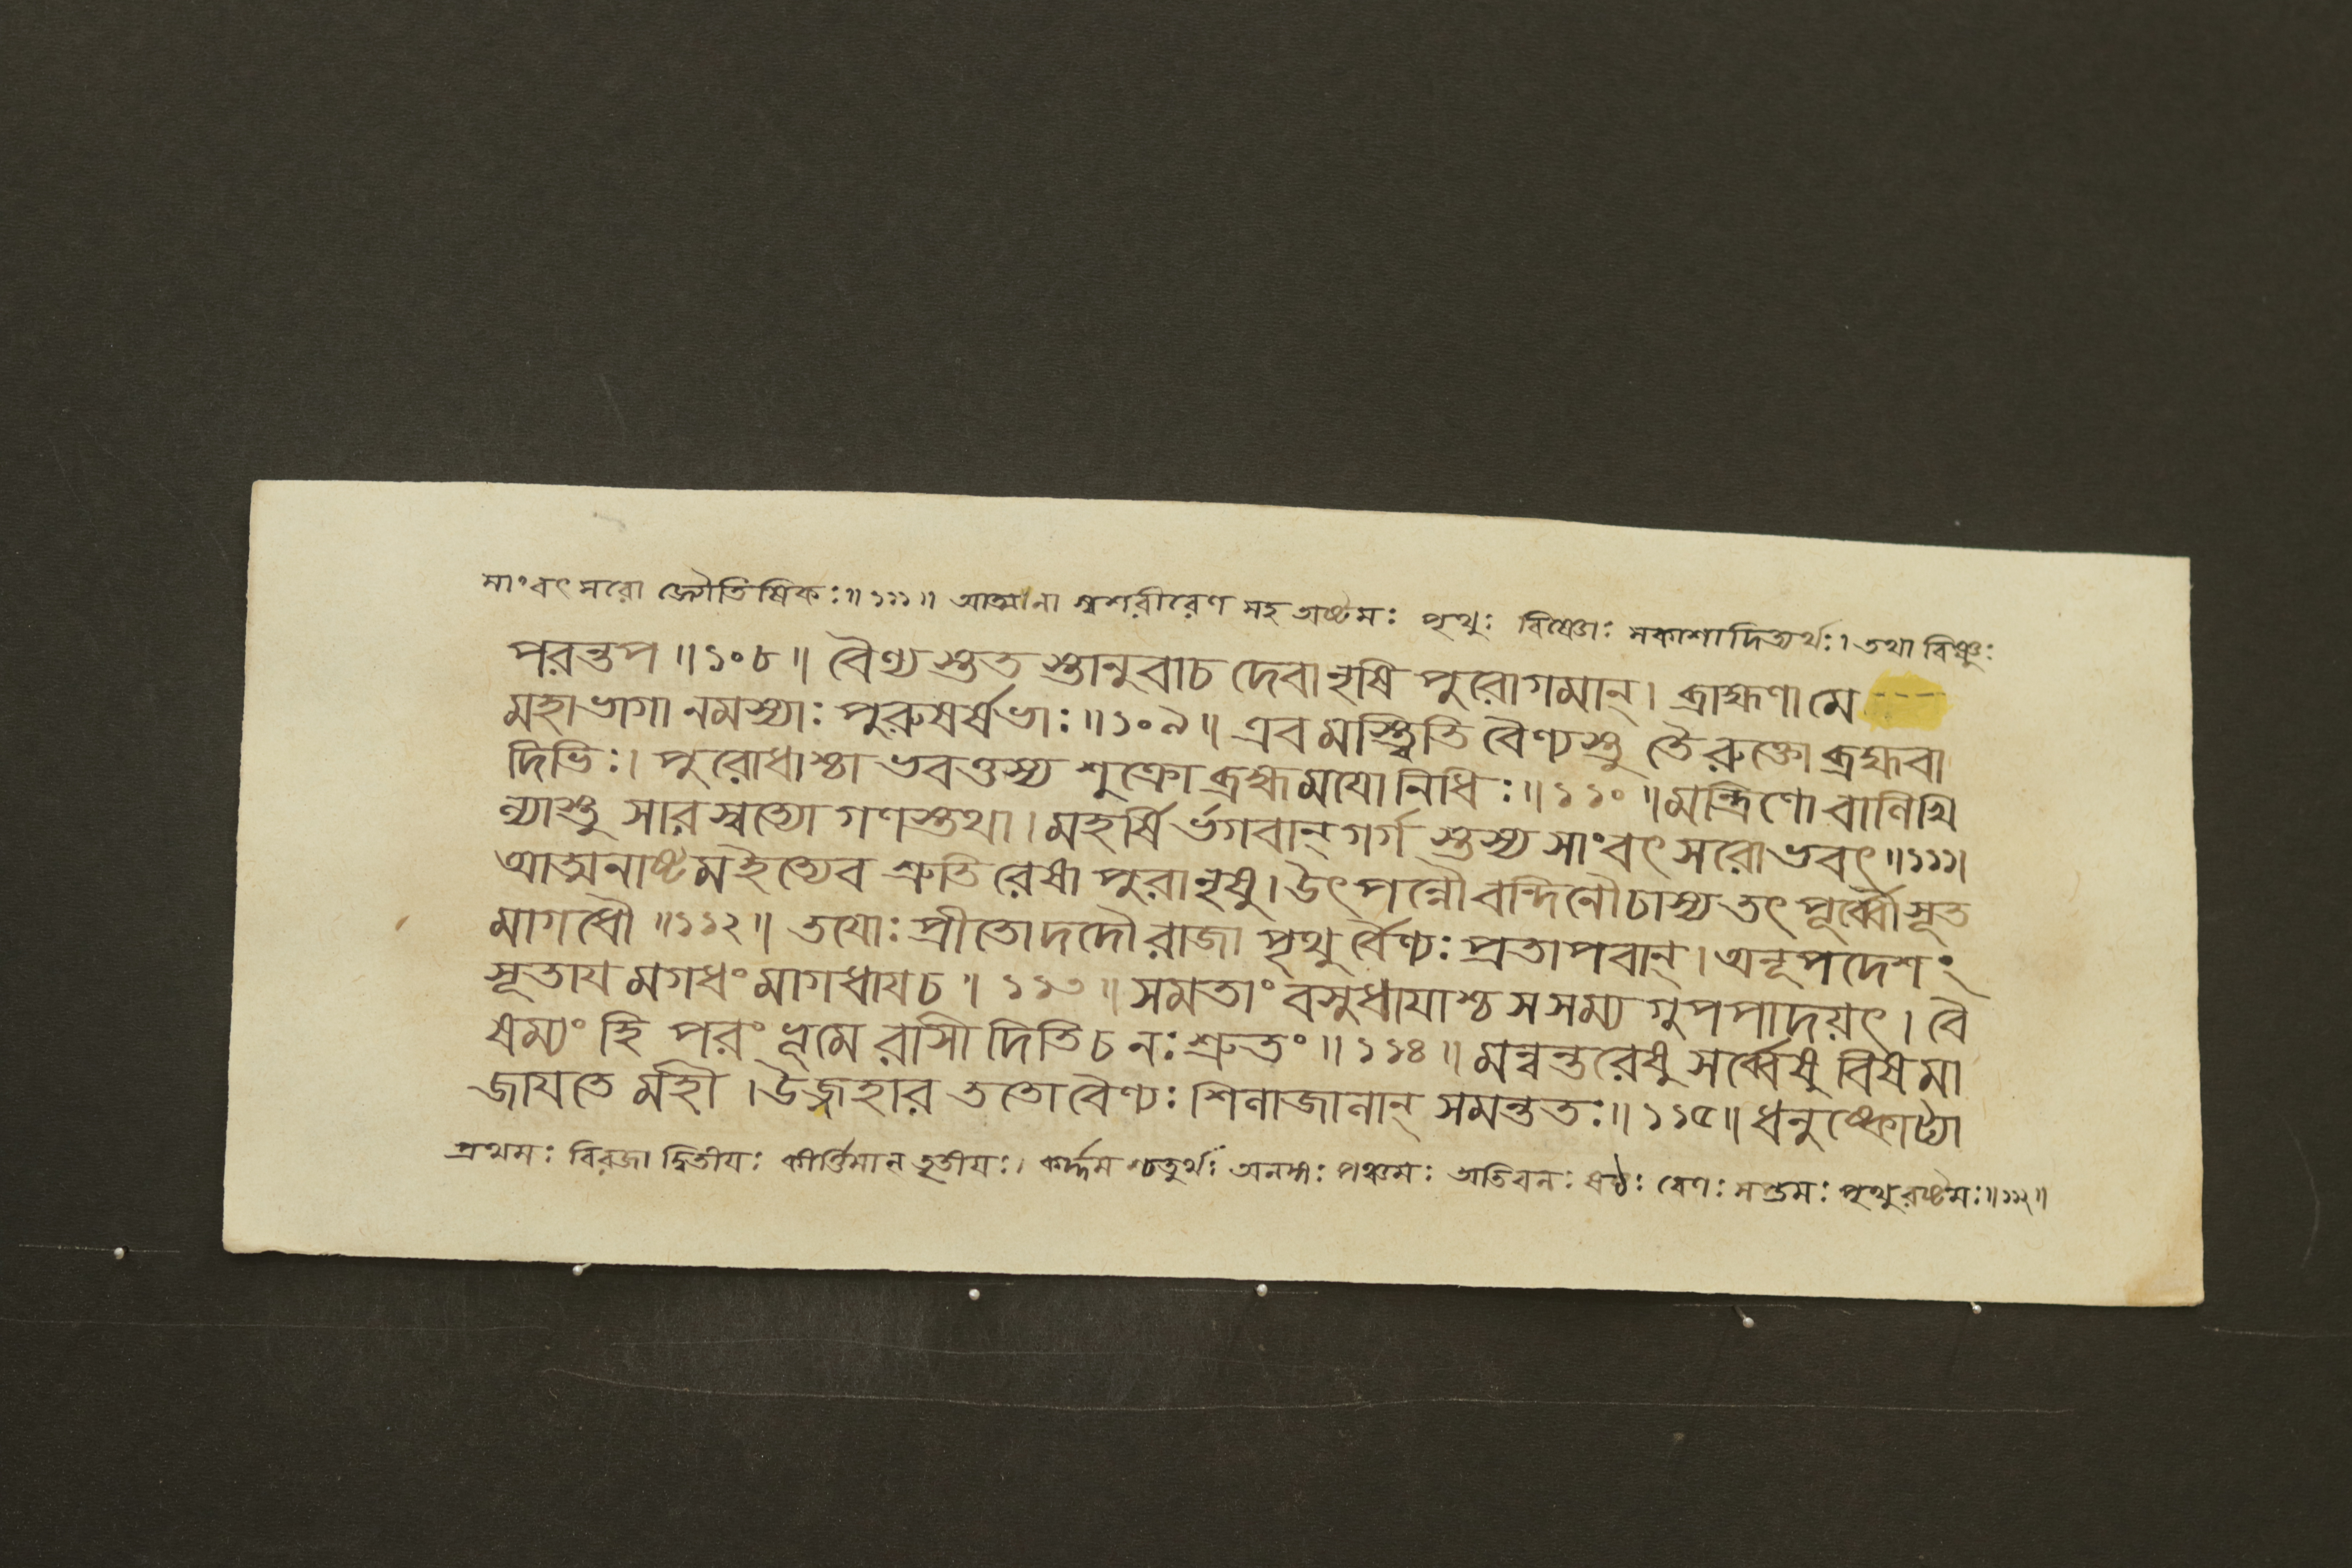 সাংবৎসরো জ্যৌতিষিকঃ॥১১১॥ আত্মনা স্বশরীরেণ সহ অষ্টমঃ পৃথুঃ বিষ্ণোঃ সকাশাদিত্যর্থঃ। তথা বিষ্ণুঃ
পরন্তপ॥১০৮॥ বৈণ্যস্তুত স্তানুবাচ দেবানৃষি পুরোগমান্। ব্রাহ্মণা মে
মহাভাগা নমস্যাঃ পুরুষর্ষভাঃ॥১০৯॥ এবমস্ত্বিতি বৈণ্যস্তু তৈরুক্তো ব্রহ্মবা
দিভিঃ। পুরোধাশ্চা ভবত্তস্য শুক্রো ব্রহ্মময়ো নিধিঃ॥১১০॥ মন্ত্রিণো বানিখি
ন্যাস্তু সারস্বত্যো গণস্তথা। মহর্ষি র্ভগবান্ গর্গ স্তস্য সাংবৎসরোভবৎ॥১১১।
আত্মনাষ্টমইত্যেব শ্রুতি রেষা পুরানৃষু। উৎপন্নৌ বন্দিনৌ চাস্য তৎপূর্ব্বৌ সূত
মাগধৌ॥১১২॥ তয়োঃ প্রীতো দদৌ রাজা পৃথু র্বৈণ্যঃ প্রতাপবান্। অনূপদেশং
সূতায় মগধং মাগধায় চ॥১১৩॥ সমতাং বসুধায়াশ্চ স সম্য গুপপাদয়ৎ। বৈ
ষম্যং হি পরং ভূমে রাসী দিতি চ নঃ শ্রুতং॥১১৪॥ মন্বন্তরেষু সর্ব্বেষু বিষমা
জায়তে মহী। উজ্জহার ততো বৈণ্যঃ শিলাজালান্ সমন্ততঃ॥১১৫॥ ধনুষ্কোট্যা
প্রথমঃ বিরজা দ্বিতীয়ঃ কীর্ত্তিমান্ তৃতীয়ঃ। কর্দ্দম শ্চতুর্থঃ অনঙ্গঃ পঞ্চমঃ অতিবলঃ ষষ্ঠঃ বেণঃ সপ্তমঃ পৃথুরষ্টমঃ॥১১২॥